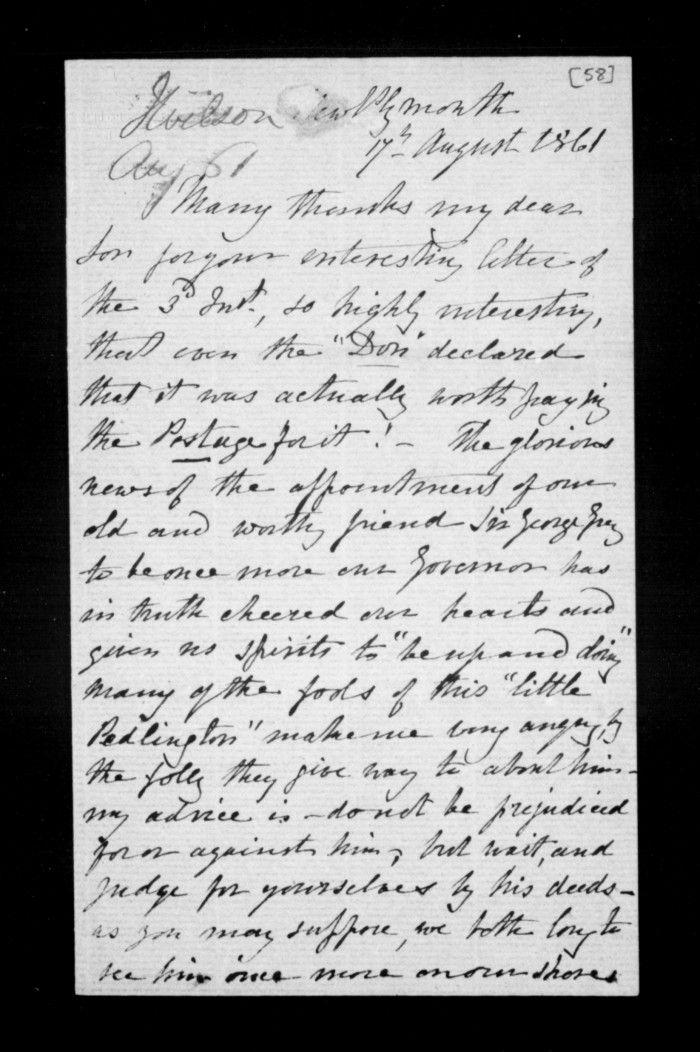 [58]
New Plymouth
17th August 1861
Aug 61
Many thanks my dear
Son for your interesting letter of
the 3d Inst., so highly interesting,
that even the "Don" declared
that it was actually worth paying
the Postage for it! - The glorious
news of the appointment of our
old and worthy friend Sir George Grey
to be once more our Governor has
in truth cheered our hearts and
given us spirits to "be up and doing"
many of the fools of this "little
Pedlington" make me very angry, by
the folly they give way to about him -
my advice is - do not be prejudiced
for or against him, but wait, and
judge for yourselves by his deeds -
as you may suppose, we both long to
see him once more on our shores